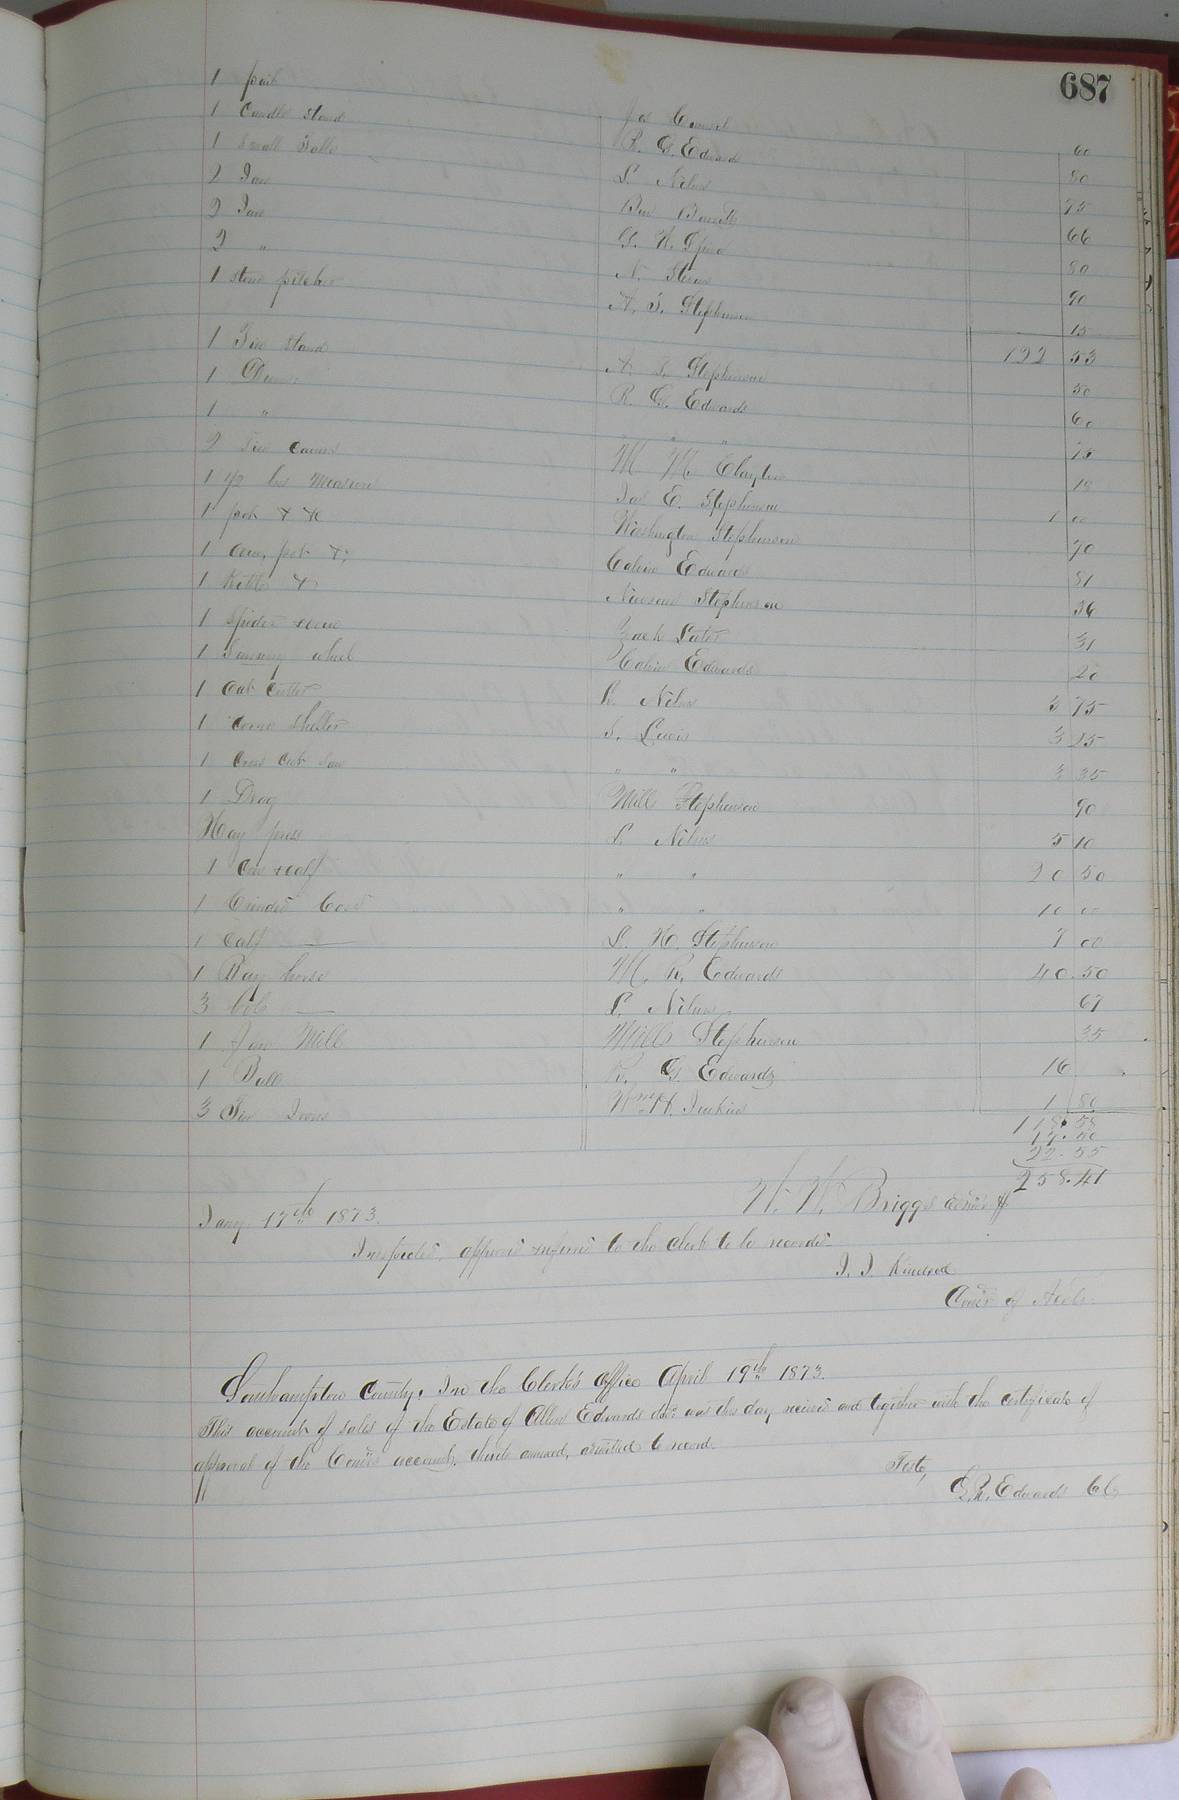 687
1 pail Jos Council 60
1 Candle stand R. G. Edwards 80
1 Small Table L. Nelms 75
2 Jars Ben Barrett 66
2 Jars G. W. 80
2 " N. 90
1 stone pitcher A. T. Stephenson 15
122 53
1 stand A. T. Stephenson 50
1 R. G. Edwards 60
1 " " " 15
2 Tin M. M. Clayton 18
1 1/2 bus Measure Jas E. Stephenson 1 00
1 pot & Washington Stephenson 70
1 pot & Calvin Edwards 81
1 Kettle & Newsom Stephenson 36
1 Spider Zach 31
1 wheel Calvin Edwards 20
1 Oat Cutter L. Nelms 3 75
1 corn sheller S. Lewis 3 25
1 Cross Cut Saw " " 3 35
1 Drag Mills Stephenson 90
Hay press L. Nelms 5 10
1 Cow & calf " " 20 50
1 " " 10 00
1 Calf L. H. Stephenson 7 00
1 Bay horse M. R. Edwards 40.50
3 L. Nelms 67
1 Mill Mills Stephenson 35
1 Bull R. G. Edwards 16
3 Irons Wm H. Jenkins 1 80
118.58
17.50
22.55
258.41
W. W. Briggs
Jany 17th 1873.
Inspected, approved & referred to the clerk to be recorded
J. J. Kindred
Comr of Accts.
Southampton County. In the Clerk's Office April 19th 1873.
This account of sales of the Estate of Allen Edwards decd was this day received and together with the certificate of
approval of the Comr of accounts thereto annexed, admitted to record.
Teste,
L. R. Edwards C C